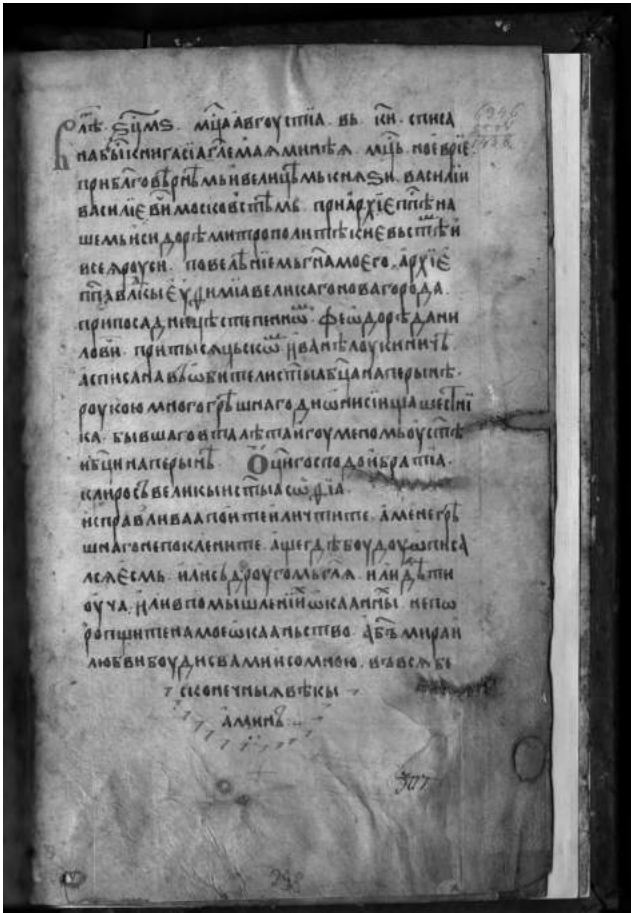 В лѣⷮ. ѕ҃ц҃м҃ѕ. мцⷭ҇а авгоуста. въ. к҃и. списа
на быⷭ҇ книга сіа гл҃емая минѣя. мцⷭ҇ь. ноеврїе.
при блг҃овѣрнѣмь и велицѣмь кнѧѕи. василіи
василїевⷱ҇и московъстѣмь. при архїеппⷭ҇ѣ на
шемь исидорѣ митрополитѣ киевьстѣⷨ҇ и
всея роуси. повелѣнїемь гн҃а моего. архїе
пⷭ҇па влⷣкы еуѳиміа великаго новагорода.
при посадницѣ степенноⷨ҇ ѡ. феѡдорѣ дани
ловиⷱ҇. при тысяцьскоⷨ҇ иванѣ лоукиничѣ
а списана въ ѡбители ст҃ыа бц҃а на перынѣ.
роукою многогрѣшнаго дїѡнисїища
ка. бывшаго в та лѣта игоуменомь оу ст҃ѣ
и бц҃и на перынѣ. Ѻц҃и господо и братіа.
клиросъ великыи ст҃ыа соѳїа.
исправливаа поите или чтите. а мене грѣ
шнаго не поклените. аще гдѣ боудоу ѡписа
лся есмь. или съ дроугомь гл҃я. или дѣти
оуча. или в помышленїи ѡкааннⷨ҇ы. не по
ропщите на мое ѡкааньство. а б҃ъ мира и
любви боуди с вами и со мною. въ вся бе
сконечныя вѣкы
аминь
6946
5508
1438
307
298